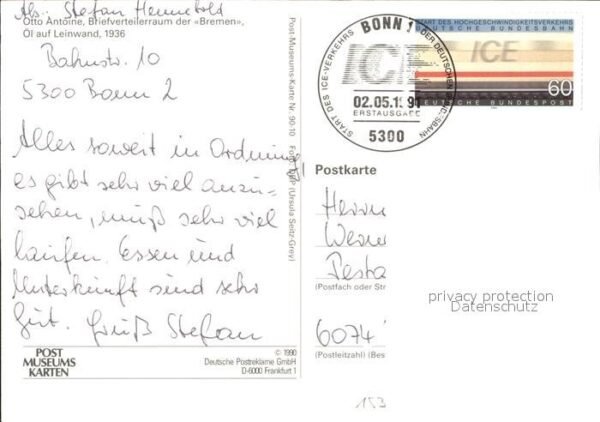 Abs.: Stefan
Otto Antoine, Briefverteilerraum der «Bremen»,
Öl auf Leinwand, 1936
Bahnstr. 10
5300 Bonn 2
Alles soweit in Ordnung,
es gibt sehr viel anzu-
sehen, muß sehr viel
laufen. Essen und
Unterkunft sind sehr
gut. Gruß Stefan
POST
MUSEUMS
KARTEN
© 1990
Deutsche Postreklame GmbH
D-6000 Frankfurt 1
Post-Museums-Karte Nr. 90.10 Foto: (Ursula Seitz-Grey)
BONN 1
START DES ICE-VERKEHRS DER DEUTSCHEN BUNDESBAHN
ICE
02.05.1991
ERSTAUSGABE
5300
START DES HOCHGESCHWINDIGKEITSVERKEHRS
DEUTSCHE BUNDESBAHN
ICE
60
DEUTSCHE BUNDESPOST
Postkarte
Herrn
Werne
Pesta
(Postfach oder Str
privacy protection
Datenschutz
6074
(Postleitzahl) (Bes
153